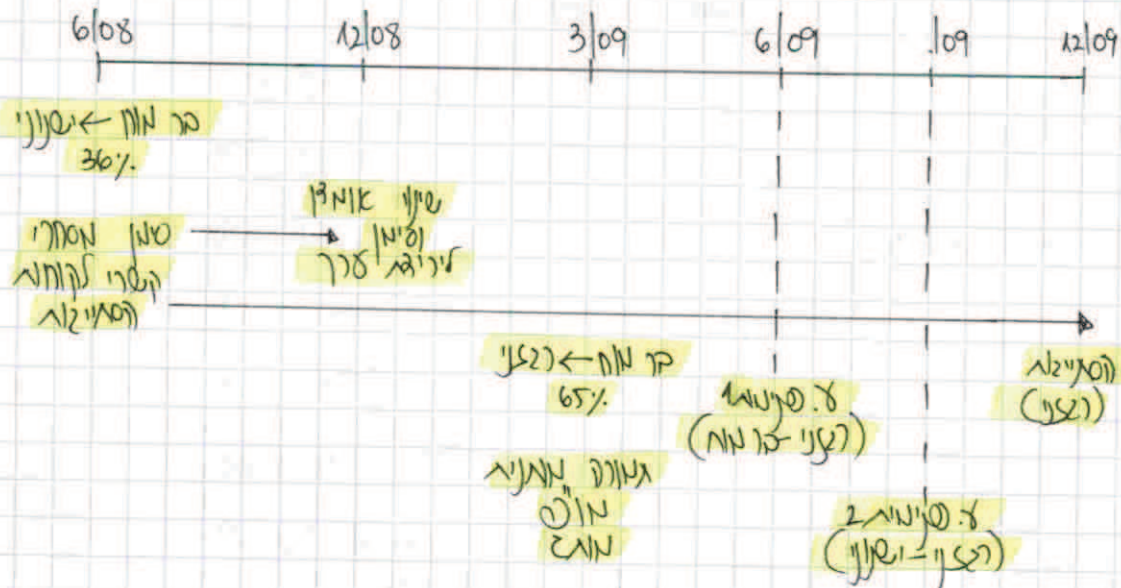 6/08 12/08 3/09 6/09 /09 12/09
בר מוח → ישנוני
36%
סימן מסחרי
קשרי לקוחות
הסתייגות
שינוי אומדן
וסימן
לירידת ערך
בר מוח → רבגוני
65%
תמורה מותנית
מו"פ
מותג
ע. פנימית 1
(רבגוני - בר מוח)
ע. פנימית 2
(רבגוני - ישנוני)
(רבגוני)